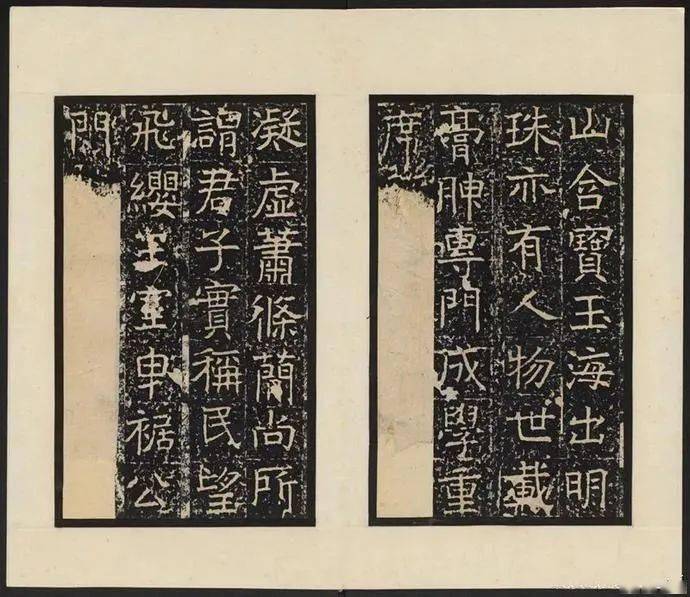 山含寶玉海出明
珠亦有人物世載
膏腴專門成學重
席
凝虛蕭條蘭尚所
謂君子實稱民望
飛纓王室申裾公
門